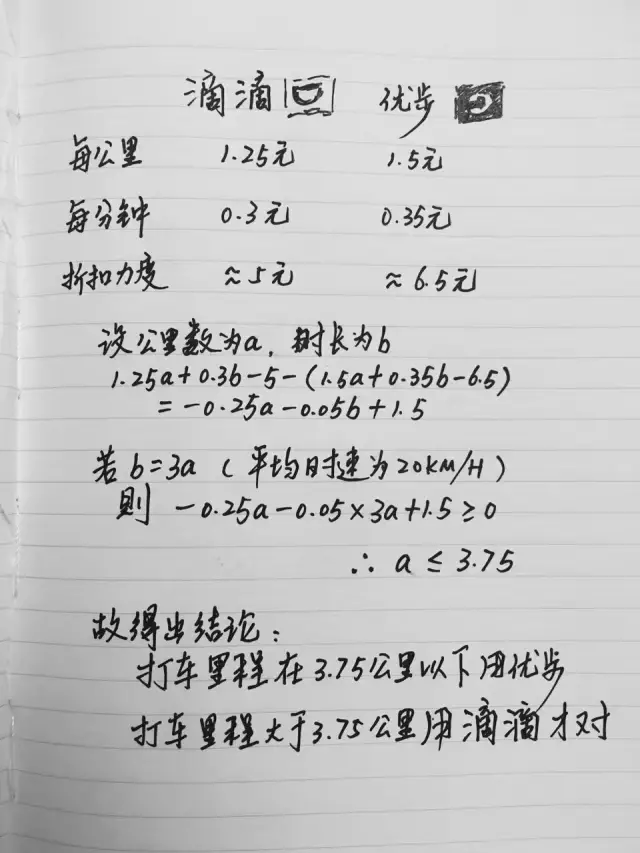 滴滴 优步
每公里 1.25元 1.5元
每分钟 0.3元 0.35元
折扣力度 ≈5元 ≈6.5元
设公里数为a,时长为b
1.25a+0.3b-5-(1.5a+0.35b-6.5)
=-0.25a-0.05b+1.5
若b=3a(平均时速为20KM/H)
则 -0.25a-0.05×3a+1.5≥0
∴ a≤3.75
故得出结论:
打车里程在3.75公里以下用优步
打车里程大于3.75公里用滴滴才对